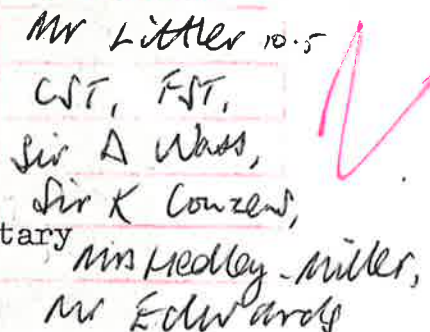 Mr Littler 10.5
CST, FST,
Sir D Wass,
Sir K Couzens,
tary
Mrs Hedley-Miller,
Mr Edwards